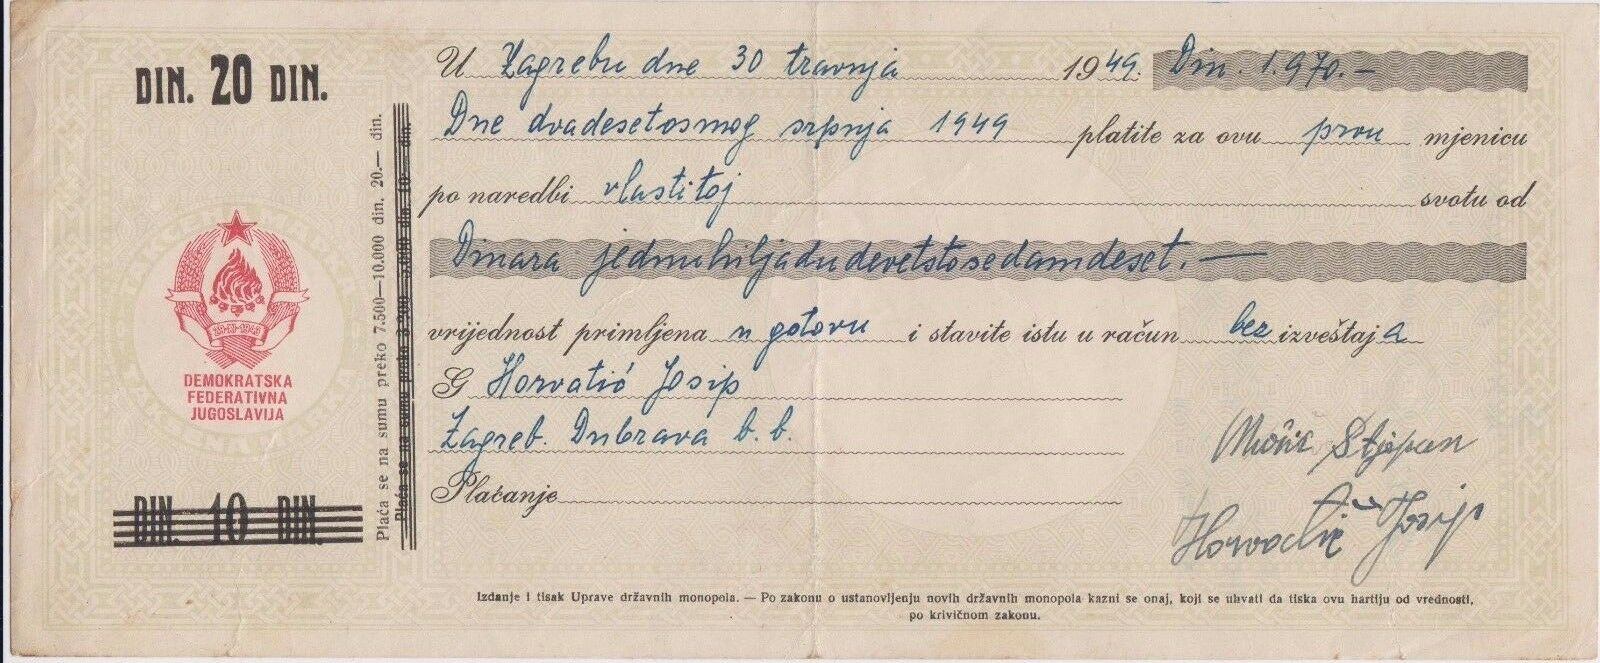 DIN. 20 DIN.
DEMOKRATSKA
FEDERATIVNA
JUGOSLAVIJA
29·XI·1943
DIN. 10 DIN.
Plaća se na sumu preko 7.500—10.000 din. 20.— din.
Plaća se na sumu preko din. 10 din.
U Zagrebu dne 30 travnja 1949. Din. 1.970.—
Dne dvadesetosmog srpnja 1949 platite za ovu prvu mjenicu
po naredbi vlastitoj svotu od
Dinara jednuhiljadudevetstosedamdeset.—
vrijednost primljena u gotovu i stavite istu u račun bez izveštaja
G Horvatić Josip
Zagreb. Dubrava b. b.
Plaćanje
Stjepan
Horvatić Josip
Izdanje i tisak Uprave državnih monopola. — Po zakonu o ustanovljenju novih državnih monopola kazni se onaj, koji se uhvati da tiska ovu hartiju od vrednosti,
po krivičnom zakonu.